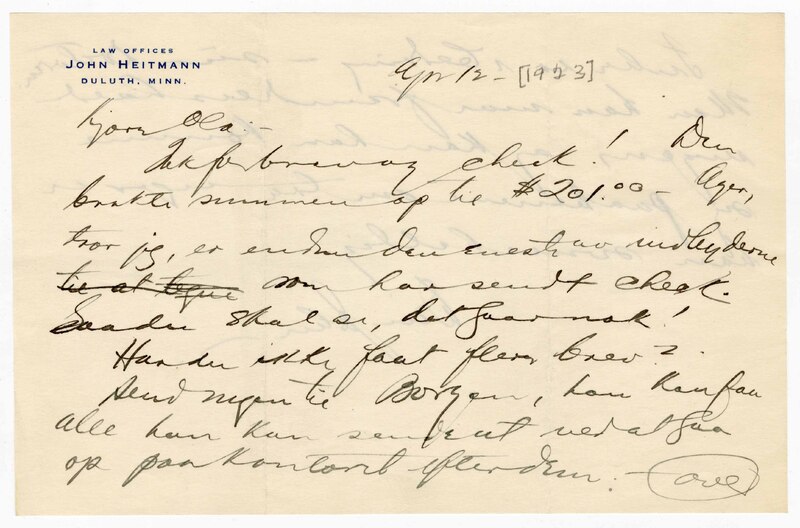 LAW OFFICES
JOHN HEITMANN
DULUTH, MINN.
Apr 12 - [1923]
Kjære Ola:-
Tak for brev og check! Den
bragte summen op til $201.00 - Ager,
tror jeg, er endnu den eneste av indbyderne
til at tegne som har sendt check.
Saa du skal se, det gaar nok!
Har du ikke faat flere brev?
Send ingen til Borgen, han kan faa
alle han kan sende ut ved at gaa
op paa kontoret efter dem. - over